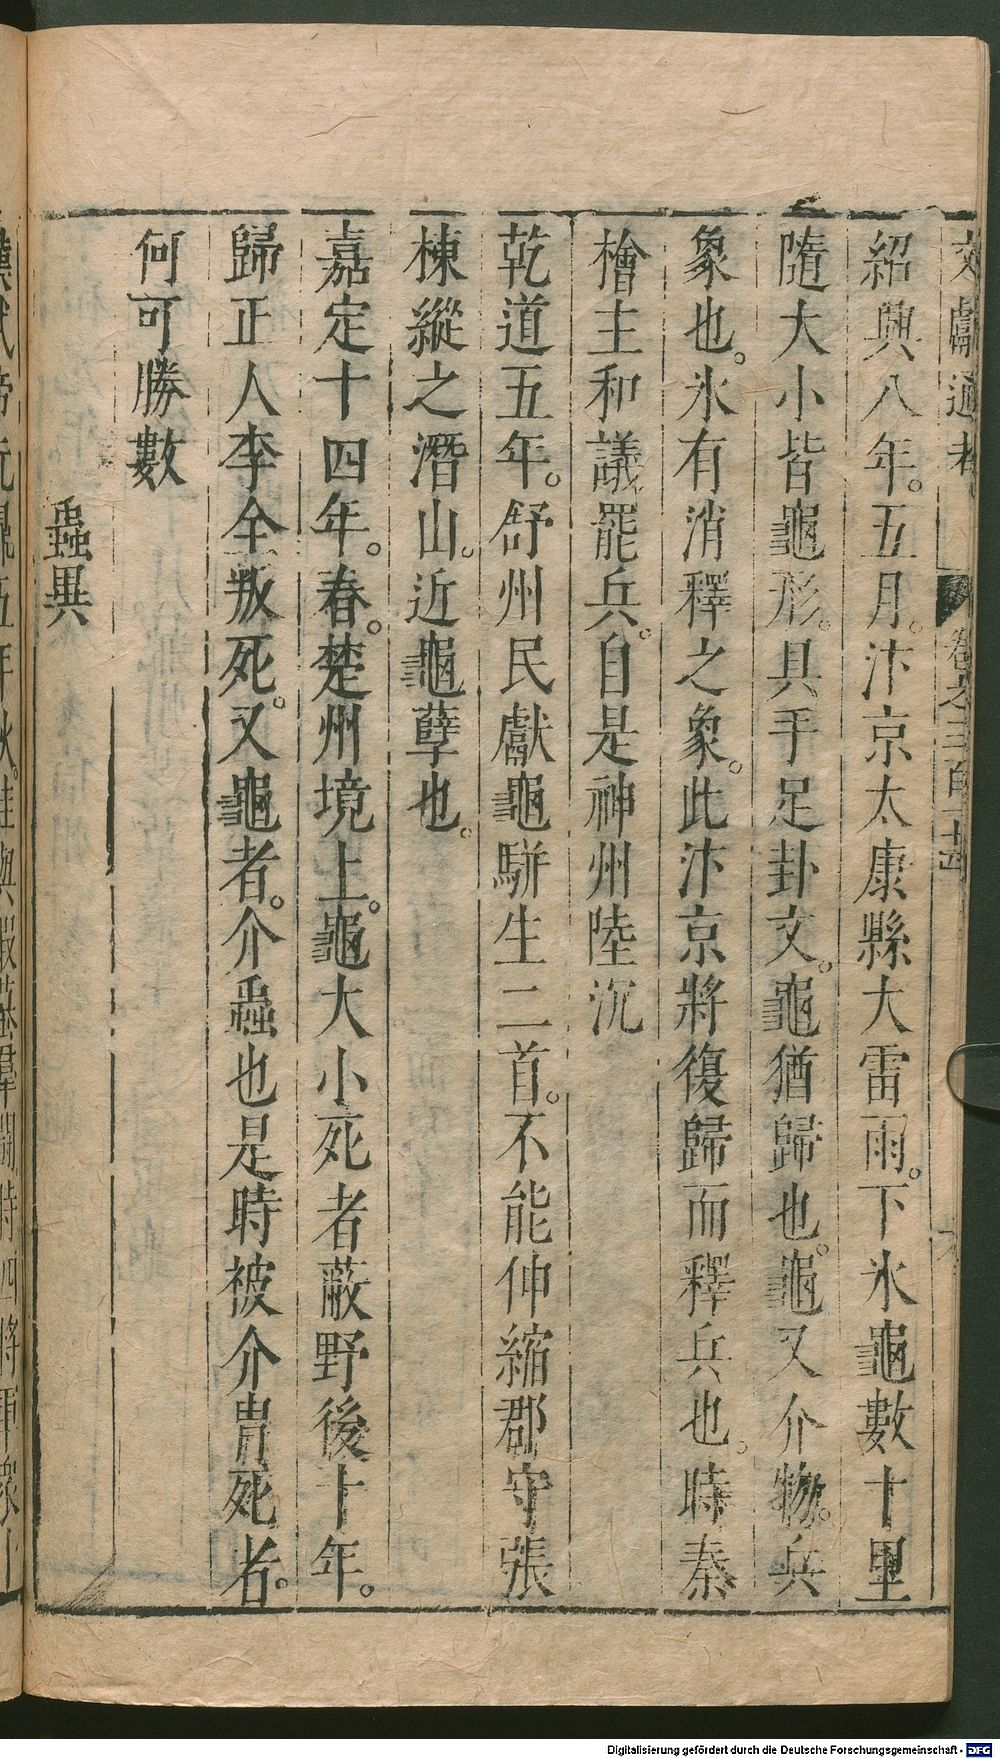 文獻通考
卷之三百十四
紹興八年。五月。汴京太康縣大雷雨。下氷龜數十里
隨大小皆龜形。具手足卦文。龜猶歸也。龜又介物。兵
象也。氷有消釋之象。此汴京將復歸而釋兵也。時秦
檜主和議罷兵。自是神州陸沉
乾道五年。舒州民獻龜駢生二首。不能伸縮郡守張
棟縱之潛山。近龜孽也。
嘉定十四年。春。楚州境上。龜大小死者蔽野後十年。
歸正人李全叛死。又龜者。介蟲也是時被介冑死者。
何可勝數
蟲異
漢武帝元鼎五年秋。蛙與蝦蟇羣鬭時四將軍衆
Digitalisierung gefördert durch die Deutsche Forschungsgemeinschaft - DFG